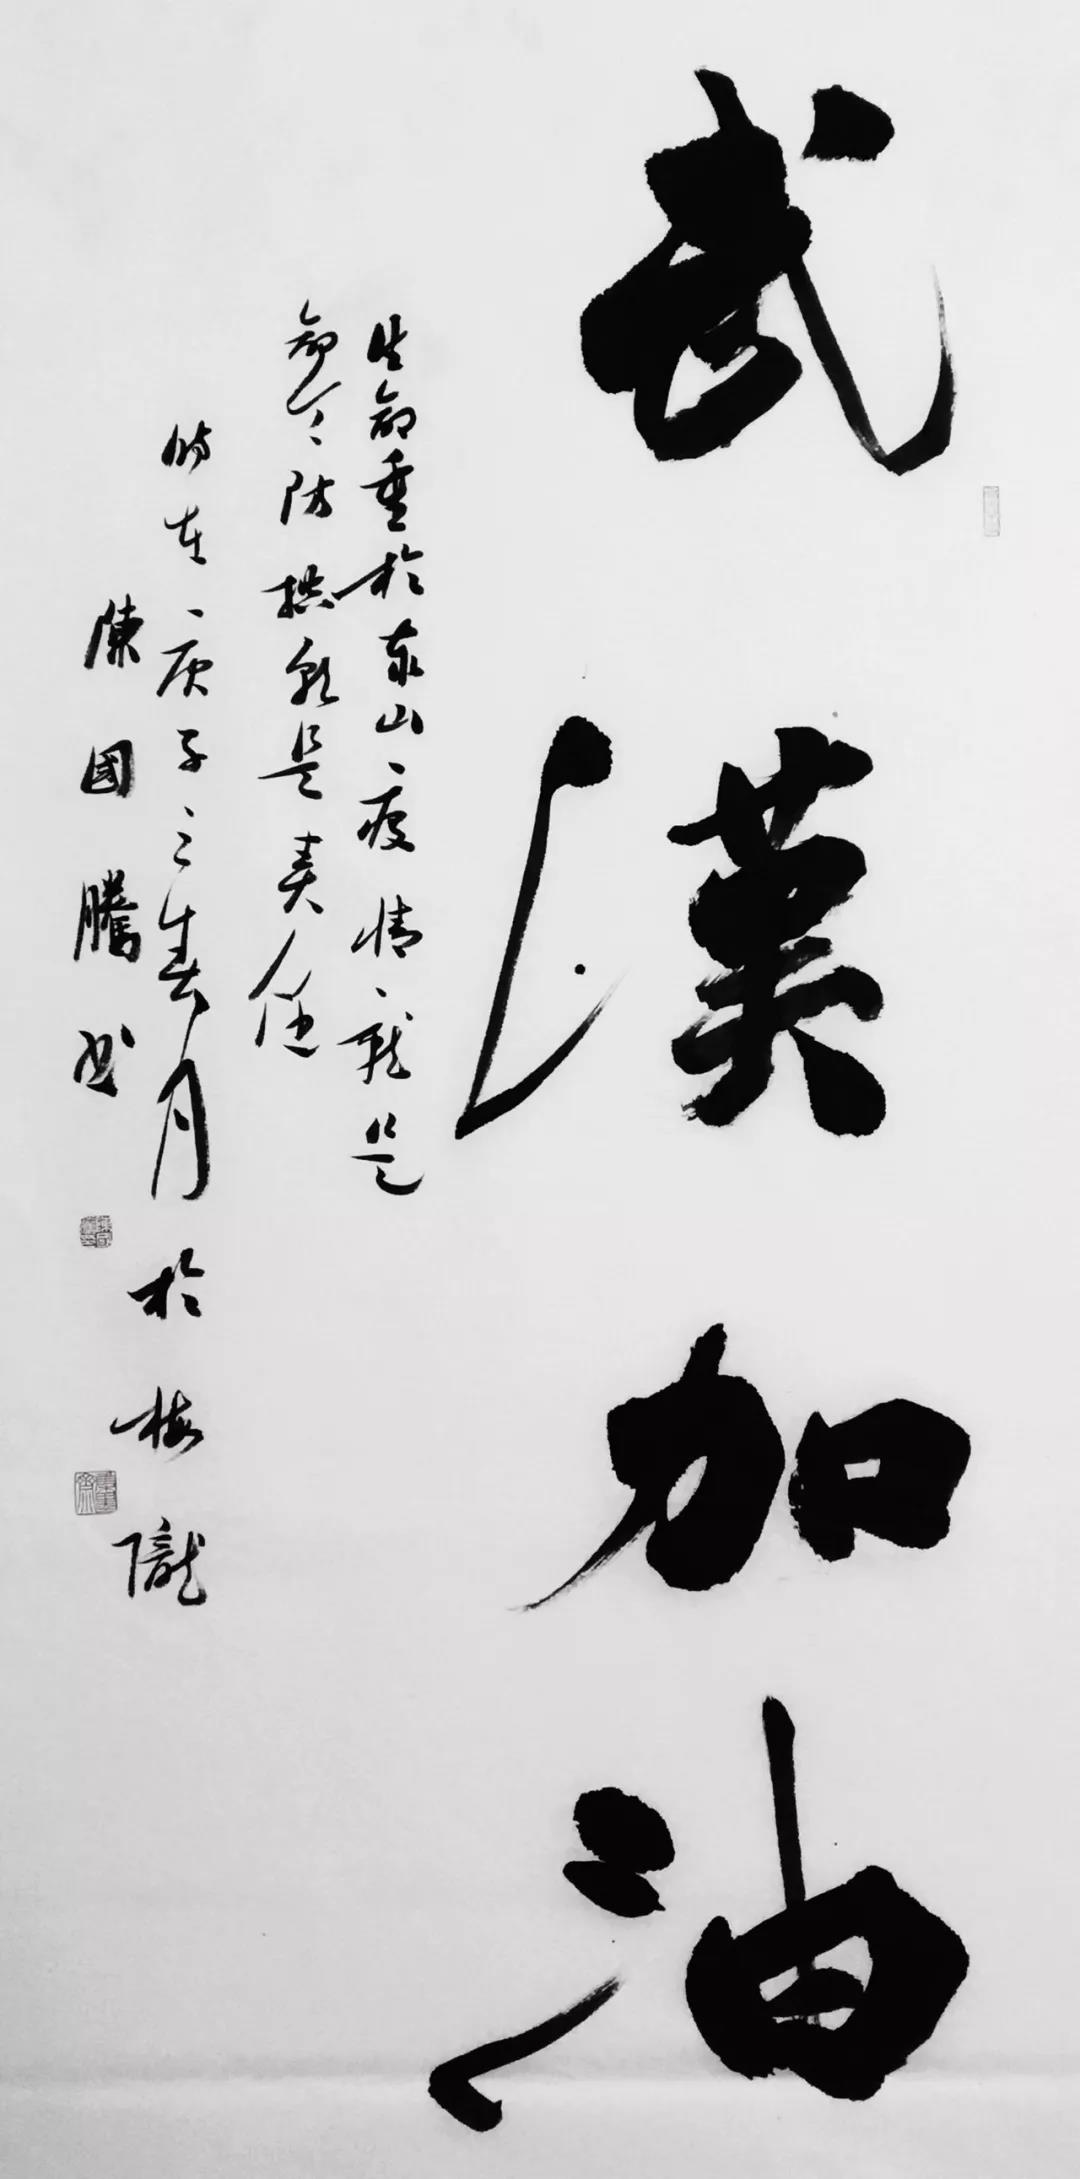 武漢加油
生命重於泰山疫情就是
命令防控就是責任
時在庚子之春月於梅隴
陳國騰書